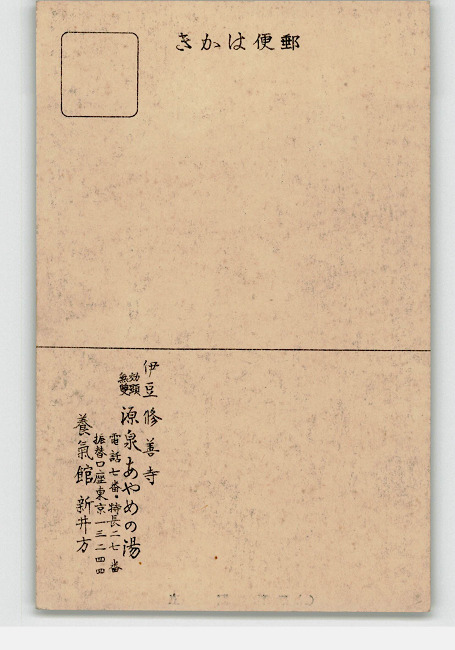 きかは便郵
伊豆修善寺
効顕無雙
源泉あやめの湯
電話七番・特長二七番
振替口座東京一三二四四
養氣館 新井方